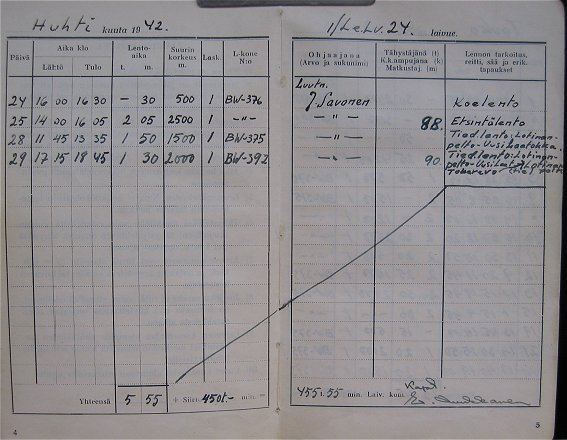 Huhti kuuta 1942.
1/Le.Lv. 24. laivue.
Päivä Aika klo Lähtö Tulo Lento-aika t. m. Suurin korkeus m. Lask. L-kone N:o
Ohjaajana (Arvo ja sukunimi) Tähystäjänä (t) K.k.ampujana (k) Matkustaj. (m) Lennon tarkoitus, reitti, sää ja erik. tapaukset
Luutn.
24 16 00 16 30 — 30 500 1 BW-376 J. Savonen Koelento
25 14 00 16 05 2 05 2500 1 -"- — " — 88. Etsintälento
28 11 45 13 35 1 50 1500 1 BW-375 — " — Tied.lento: Lotinan-
pelto-Uusi Laatokka.
29 17 15 18 45 1 30 2000 1 BW-392 — " — 90. Tied.lento: Lotinan-
pelto-Uusi
Yhteensä 5 55 + Siirt. 450 t.- min. =
455 t. 55 min. Laiv. kom. Kapt.
4
5